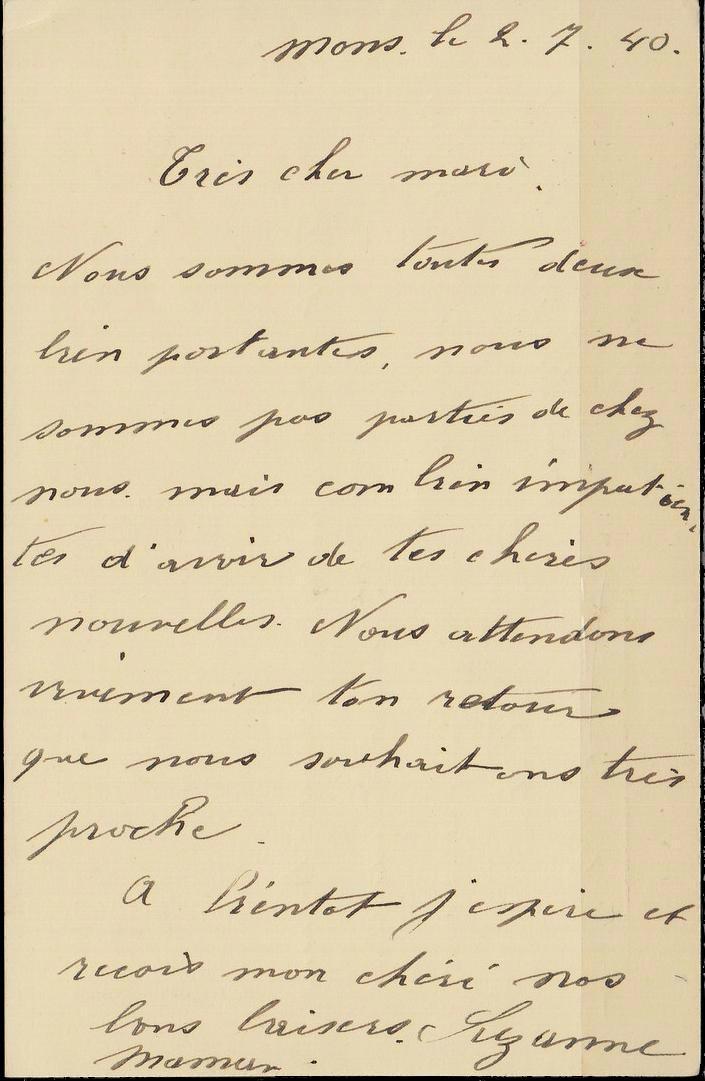 Mons. le 2. 7. 40.
Très cher mari.
Nous sommes toutes deux
bien portantes, nous ne
sommes pas parties de chez
nous. mais combien impatien-
tes d'avoir de tes chères
nouvelles. Nous attendons
vivement ton retour
que nous souhaitons très
proche.
A bientot j'espère et
recois mon chéri nos
bons baisers. Suzanne
Maman.